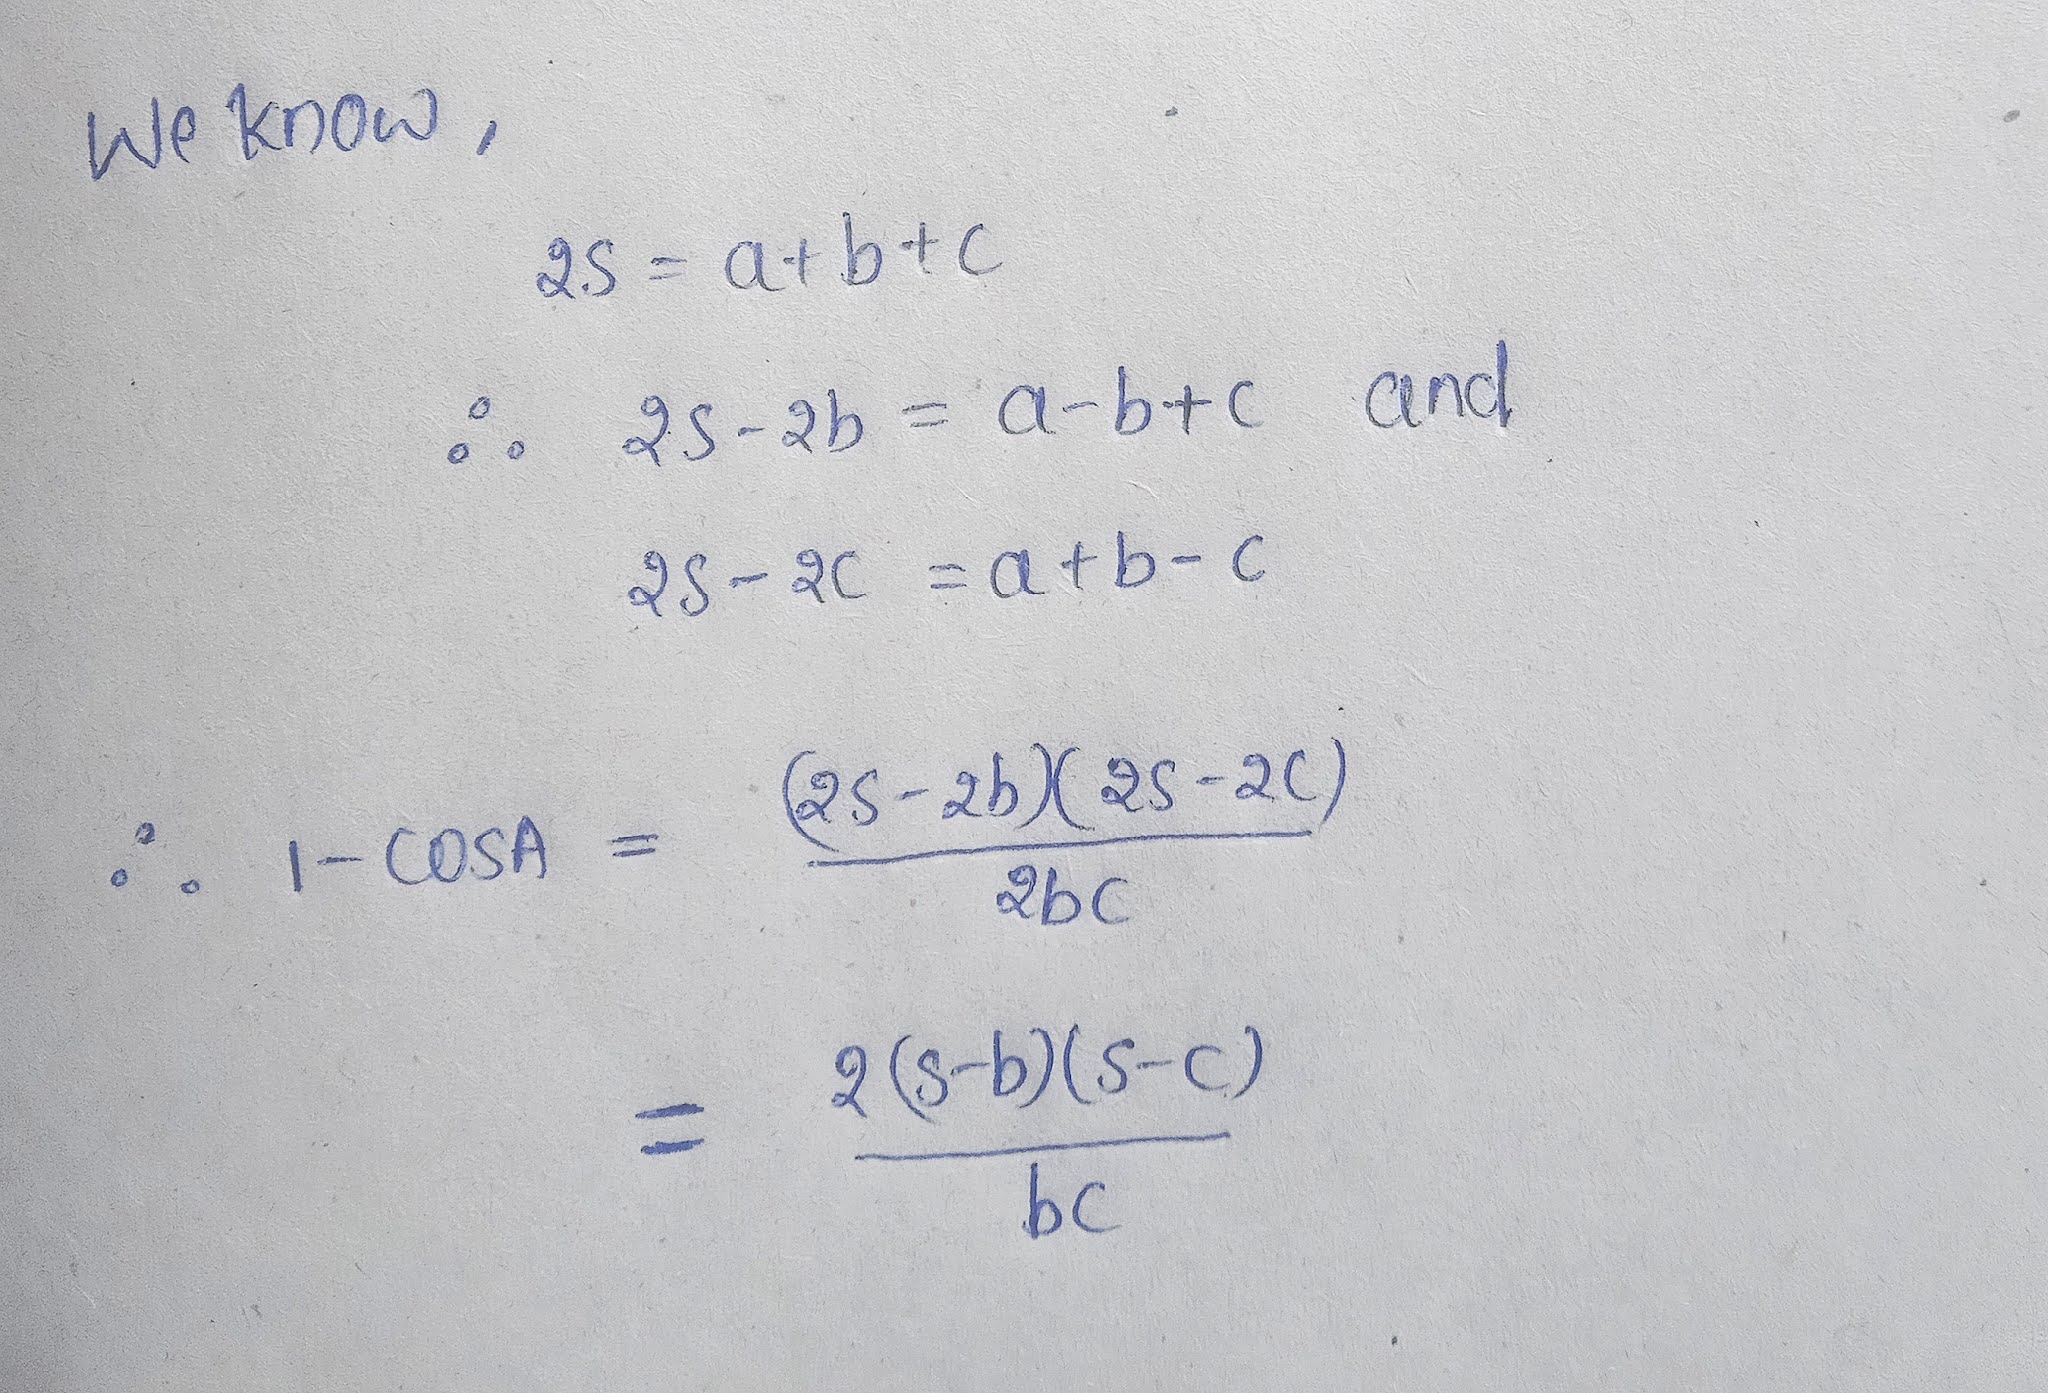 We know,
2s = a+b+c
∴ 2s-2b = a-b+c and
2s-2c = a+b-c
∴ 1-cosA = (2s-2b)(2s-2c)
2bc
= 2(s-b)(s-c)
bc